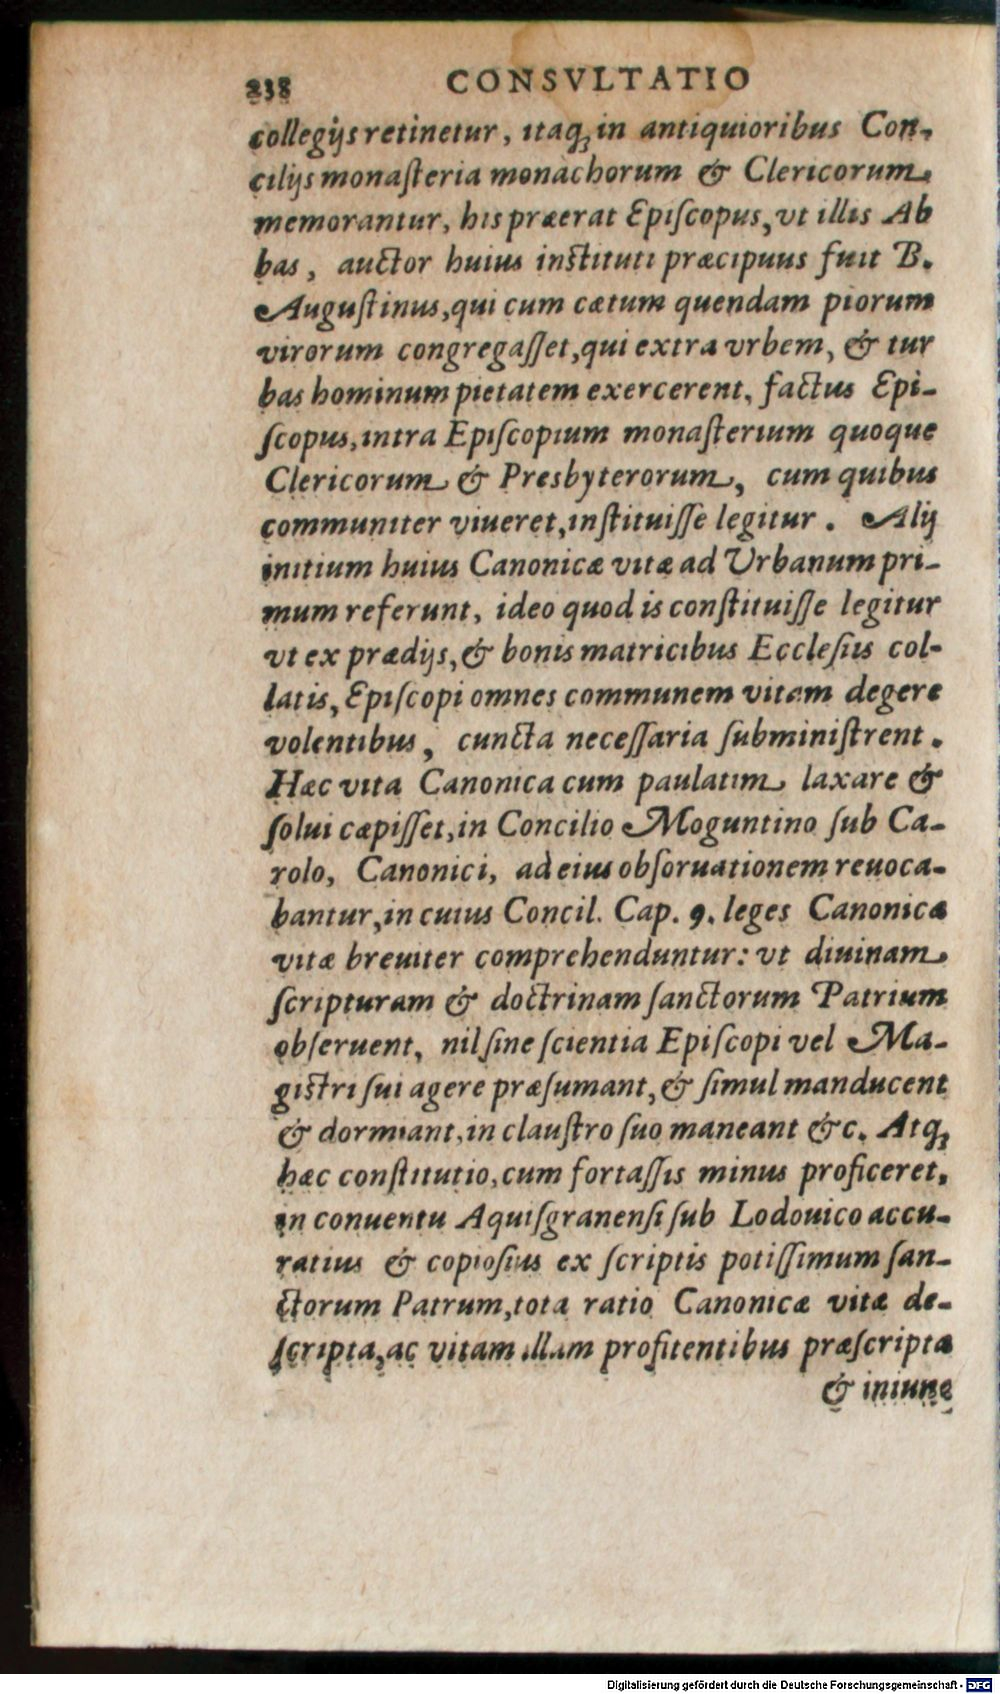 238 CONSVLTATIO
collegijs retinetur, itaq; in antiquioribus Con-
cilijs monaſteria monachorum & Clericorum
memorantur, his præerat Epiſcopus, vt illis Ab
bas, auctor huius inſtituti præcipuus fuit B.
Auguſtinus, qui cum cætum quendam piorum
virorum congregaſſet, qui extra vrbem, & tur
bas hominum pietatem exercerent, factus Epi-
ſcopus, intra Epiſcopium monaſterium quoque
Clericorum & Presbyterorum, cum quibus
communiter viueret, inſtituiſſe legitur. Alij
initium huius Canonicæ vitæ ad Urbanum pri-
mum referunt, ideo quod is conſtituiſſe legitur
vt ex prædijs, & bonis matricibus Eccleſiis col-
latis, Epiſcopi omnes communem vitam degere
volentibus, cuncta neceſſaria ſubminiſtrent.
Hæc vita Canonica cum paulatim laxare &
ſolui cæpiſſet, in Concilio Moguntino ſub Ca-
rolo, Canonici, ad eius obſoruationem reuoca-
bantur, in cuius Concil. Cap. 9. leges Canonicæ
vitæ breuiter comprehenduntur: vt diuinam
ſcripturam & doctrinam ſanctorum Patrium
obſeruent, nil ſine ſcientia Epiſcopi vel Ma-
giſtri ſui agere præſumant, & ſimul manducent
& dormiant, in clauſtro ſuo maneant &c. Atq;
hæc conſtitutio, cum fortaſſis minus proficeret,
in conuentu Aquiſgranenſi ſub Lodouico accu-
ratius & copioſius ex ſcriptis potiſſimum ſan-
ctorum Patrum, tota ratio Canonicæ vitæ de-
ſcripta, ac vitam illam profitentibus præſcripta
& iniunc
Digitalisierung gefördert durch die Deutsche Forschungsgemeinschaft - DFG